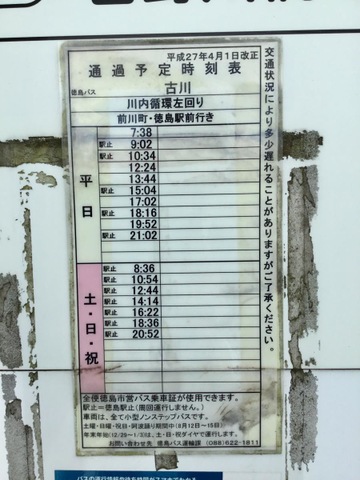 平成27年4月1日改正
通過予定時刻表
徳島バス 古川
川内循環左回り
前川町・徳島駅前行き
平日
7:38
駅止 9:02
駅止 10:34
12:24
駅止 13:44
駅止 15:04
17:02
駅止 18:16
駅止 19:52
駅止 21:02
土・日・祝
駅止 8:36
駅止 10:54
駅止 12:44
駅止 14:14
駅止 16:22
駅止 18:36
駅止 20:52
交通状況により多少遅れることがありますがご了承ください。
全便徳島市営バス乗車証が使用できます。
駅止=徳島駅止(周回運行しません。)
車両は、全て小型ノンステップバスです。
土曜・日曜・祝日・阿波踊り期間中(8月12日~15日)
年末年始(12/29~1/3)は、土・日・祝ダイヤで運行します。
お問い合わせ先 徳島バス運輸課 (088)622-1811